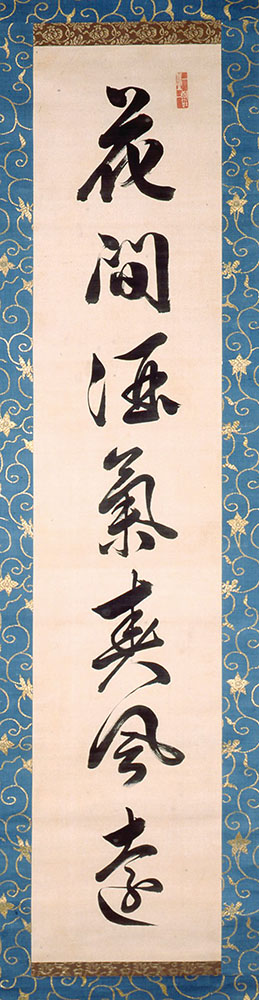 花間酒氣春風遠